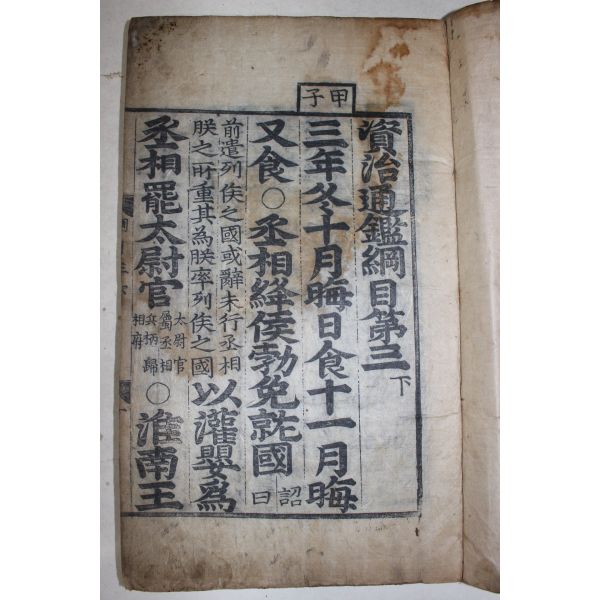 甲子
資治通鑑綱目第三下
三年冬十月晦日食十一月晦
又食○丞相絳侯勃免就國詔曰
前遣列侯之國或辭未行丞相
朕之所重其為朕率列侯之國
以灌嬰爲
丞相罷太尉官
太尉官
屬丞相
兵柄歸
相府
○淮南王